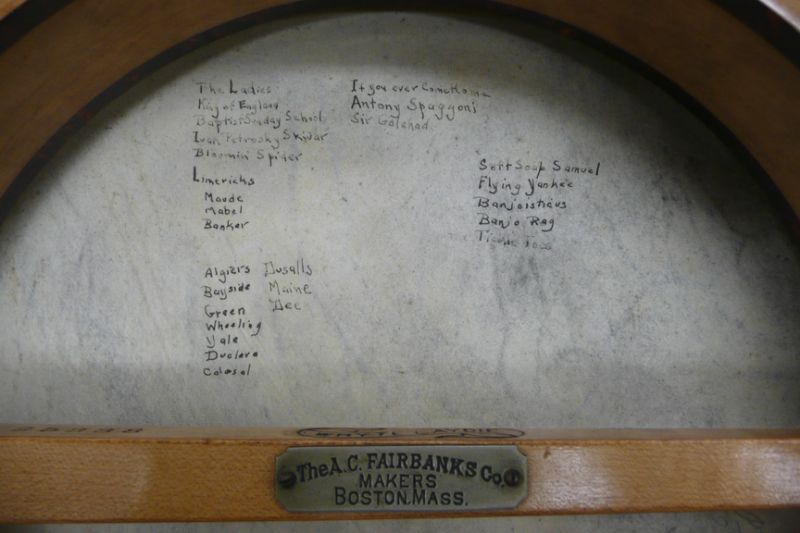 The Ladies
King of England
Baptist Sunday School
Ivan Petrosky Skivar
Bloomin' Spider
If you ever Come Home
Antony Spaggoni
Sir Galahad
Limericks
Maude
Mabel
Banker
Soft Soap Samuel
Flying Yankee
Banjoisticus
Banjo Rag
Algiers
Bayside
Green
Wheeling
Yale
Duclara
Colosal
Dusalls
Maine
Dee
25338
WHYTE LAYDIE
The A.C. FAIRBANKS Co.
MAKERS
BOSTON, MASS.